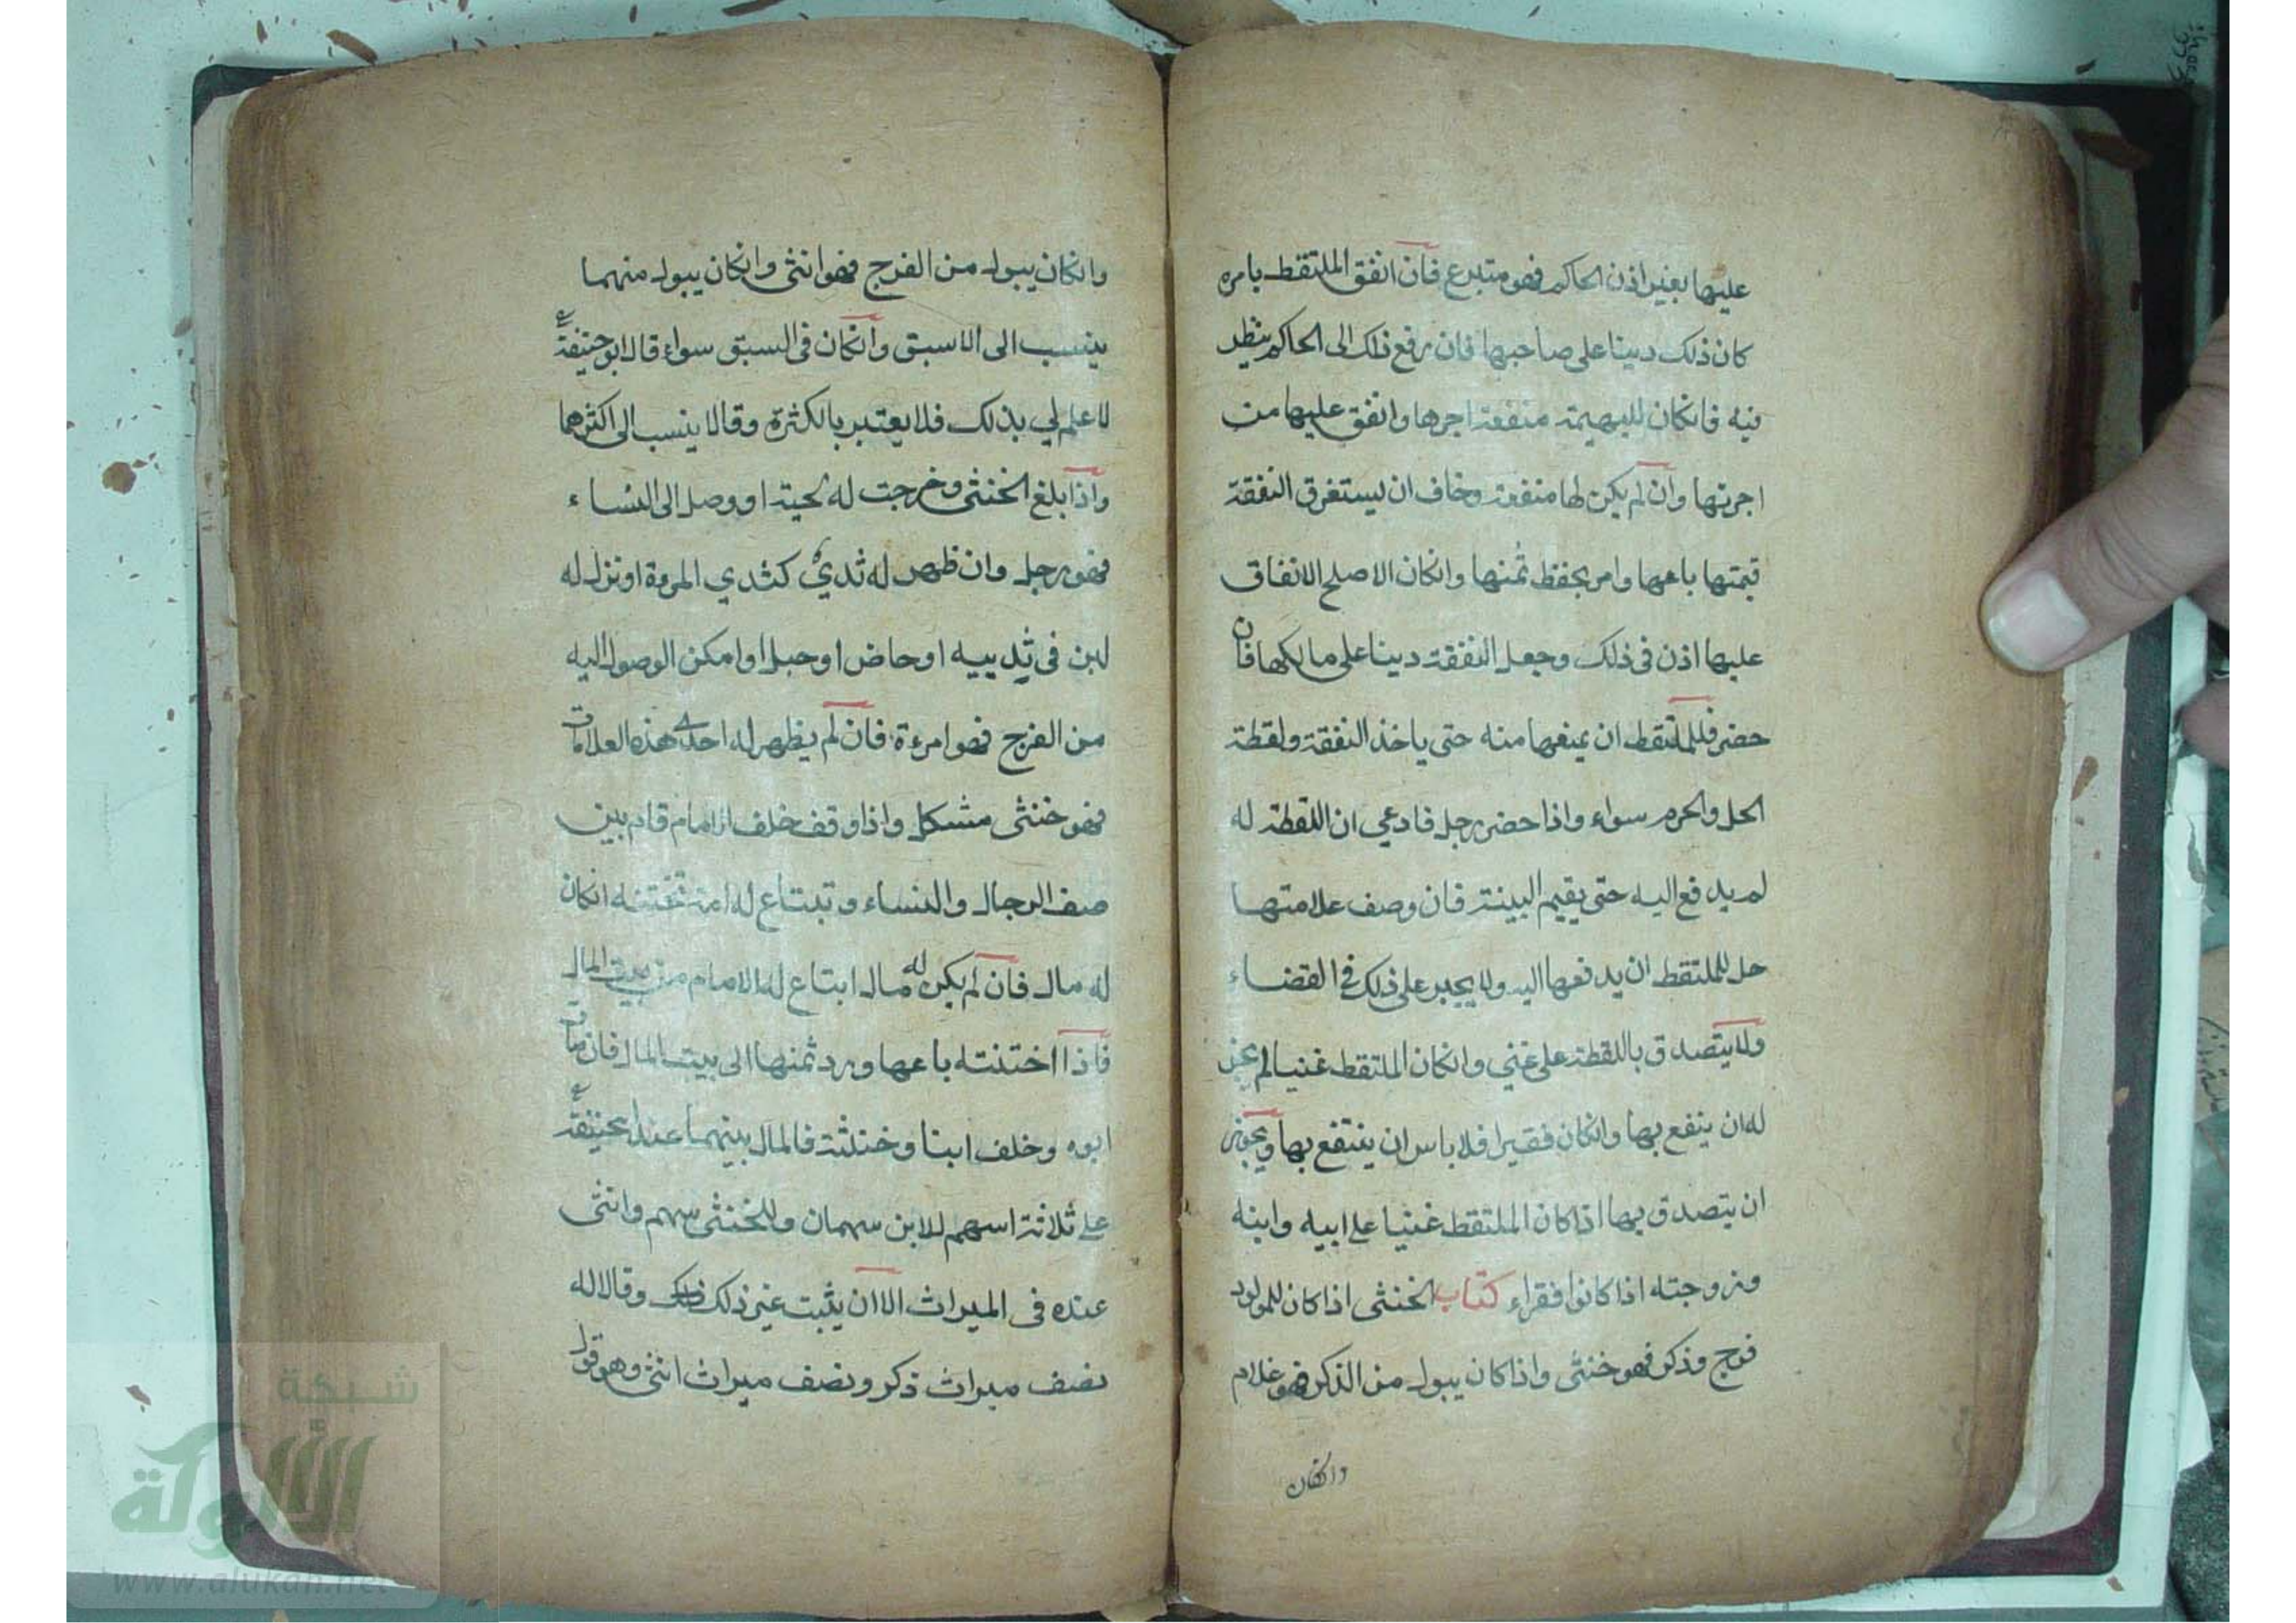 عليها بغير اذن الحاكم فهو متبرع فان انفق الملتقط بامره
كان ذلك دينا على صاحبها فان رفع ذلك الى الحاكم ينظر
فيه فانكان للبهيمة منفعة اجرها وانفق عليها من
اجرتها وان لم يكن لها منفعة وخاف ان يستغرق النفقة
قيمتها باعها وامر بحفظ ثمنها وانكان الاصلح الانفاق
عليها اذن في ذلك وجعل النفقة دينا على مالكها فان
حضر فللملتقط ان يمنعها منه حتى ياخذ النفقة ولقطة
الحل والحرم سواء واذا حضر رجل فادعي ان اللقطة له
لم يدفع اليه حتى يقيم البينة فان وصف علامتها
حل للملتقط ان يدفعها اليه ولا يجبر على ذلك في القضاء
ولا يتصدق باللقطة على غني وانكان الملتقط غنيا لم يجز
له ان ينفع بها وانكان فقيرا فلا باس ان ينتفع بها ويجوز
ان يتصدق بها اذا كان الملتقط غنيا على ابيه وابنه
وزوجته اذا كانوا فقراء كتاب الخنثى اذا كان للمولود
فرج وذكر فهو خنثى واذا كان يبول من الذكر فهو غلام
وانكان
وانكان يبول من الفرج فهو انثى وانكان يبول منهما
ينسب الى الاسبق وانكان في السبق سواء قال ابو حنيفة
لا علم لي بذلك فلا يعتبر بالكثرة وقالا ينسب الى اكثرهما
واذا بلغ الخنثى وخرجت له لحية او وصل الى النساء
فهو رجل وان ظهر له ثدي كثدي المرءة او نزل له
لبن في ثدييه او حاض او حبل او امكن الوصول اليه
من الفرج فهو امرءة فان لم يظهر له احدى هذه العلامات
فهو خنثى مشكل واذا وقف خلف الامام قام بين
صف الرجال والنساء وتبتاع له امة تختنه انكان
له مال فان لم يكن له مال ابتاع له الامام من بيت المال
فاذا اختنته باعها ورد ثمنها الى بيت المال فان مات
ابوه وخلف ابنا وخنثى فالمال بينهما عند ابي حنيفة
على ثلاثة اسهم للابن سهمان وللخنثى سهم وانثى
عنده في الميراث الا ان يثبت غير ذلك وقالا له
نصف ميراث ذكر ونصف ميراث انثى وهو قول
شبكة
الألوكة
www.alukah.net